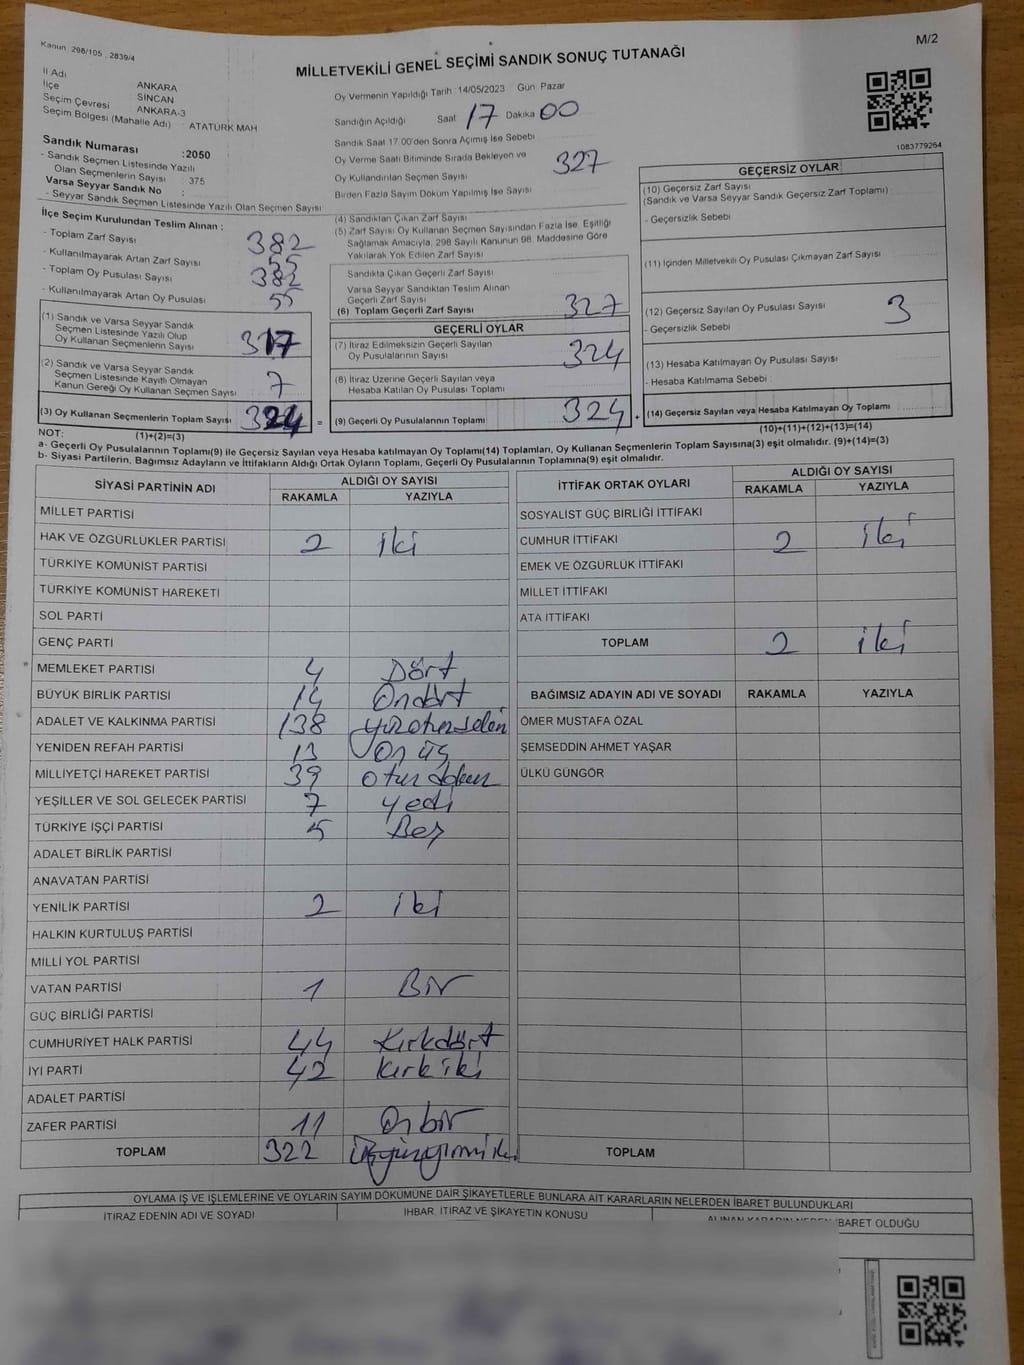 Kanun 298/105 , 2839/4
M/2
MİLLETVEKİLİ GENEL SEÇİMİ SANDIK SONUÇ TUTANAĞI
İl Adı ANKARA
İlçe SİNCAN
Seçim Çevresi ANKARA-3
Seçim Bölgesi (Mahalle Adı) : ATATÜRK MAH
Sandık Numarası :2050
- Sandık Seçmen Listesinde Yazılı
Olan Seçmenlerin Sayısı : 375
Varsa Seyyar Sandık No :
- Seyyar Sandık Seçmen Listesinde Yazılı Olan Seçmen Sayısı
Oy Vermenin Yapıldığı Tarih : 14/05/2023 Gün Pazar
Sandığın Açıldığı Saat 17 Dakika 00
Sandık Saat 17.00'den Sonra Açımış İse Sebebi
Oy Verme Saati Bitiminde Sırada Bekleyen ve
Oy Kullandırılan Seçmen Sayısı 327
Birden Fazla Sayım Döküm Yapılmış İse Sayısı
1083779264
İlçe Seçim Kurulundan Teslim Alınan :
- Toplam Zarf Sayısı 382
- Kullanılmayarak Artan Zarf Sayısı 55
- Toplam Oy Pusulası Sayısı 382
- Kullanılmayarak Artan Oy Pusulası 55
(1) Sandık ve Varsa Seyyar Sandık
Seçmen Listesinde Yazılı Olup
Oy Kullanan Seçmenlerin Sayısı 317
(2) Sandık ve Varsa Seyyar Sandık
Seçmen Listesinde Kayıtlı Olmayan
Kanun Gereği Oy Kullanan Seçmen Sayısı 7
(3) Oy Kullanan Seçmenlerin Toplam Sayısı 324
(1)+(2)=(3)
(4) Sandıktan Çıkan Zarf Sayısı
(5) Zarf Sayısı Oy Kullanan Seçmen Sayısından Fazla İse, Eşitliği
Sağlamak Amacıyla, 298 Sayılı Kanunun 98. Maddesine Göre
Yakılarak Yok Edilen Zarf Sayısı
Sandıkta Çıkan Geçerli Zarf Sayısı
Varsa Seyyar Sandıktan Teslim Alınan
Geçerli Zarf Sayısı
(6) Toplam Geçerli Zarf Sayısı 327
GEÇERLİ OYLAR
(7) İtiraz Edilmeksizin Geçerli Sayılan
Oy Pusulalarının Sayısı 324
(8) İtiraz Üzerine Geçerli Sayılan veya
Hesaba Katılan Oy Pusulası Toplamı
= (9) Geçerli Oy Pusulalarının Toplamı 324 +
GEÇERSİZ OYLAR
(10) Geçersiz Zarf Sayısı
(Sandık ve Varsa Seyyar Sandık Geçersiz Zarf Toplamı) :
- Geçersizlik Sebebi
(11) İçinden Milletvekili Oy Pusulası Çıkmayan Zarf Sayısı
(12) Geçersiz Sayılan Oy Pusulası Sayısı 3
- Geçersizlik Sebebi
(13) Hesaba Katılmayan Oy Pusulası Sayısı
- Hesaba Katılmama Sebebi
(14) Geçersiz Sayılan veya Hesaba Katılmayan Oy Toplamı
(10)+(11)+(12)+(13)=(14)
NOT:
a- Geçerli Oy Pusulalarının Toplamı(9) ile Geçersiz Sayılan veya Hesaba katılmayan Oy Toplamı(14) Toplamları, Oy Kullanan Seçmenlerin Toplam Sayısına(3) eşit olmalıdır. (9)+(14)=(3)
b- Siyasi Partilerin, Bağımsız Adayların ve İttifakların Aldığı Ortak Oyların Toplamı, Geçerli Oy Pusulalarının Toplamına(9) eşit olmalıdır.
SİYASİ PARTİNİN ADI ALDIĞI OY SAYISI
RAKAMLA YAZIYLA
MİLLET PARTİSİ
HAK VE ÖZGÜRLÜKLER PARTİSİ 2 iki
TÜRKİYE KOMÜNİST PARTİSİ
TÜRKİYE KOMÜNİST HAREKETİ
SOL PARTİ
GENÇ PARTİ
MEMLEKET PARTİSİ 4 Dört
BÜYÜK BİRLİK PARTİSİ 14 Ondört
ADALET VE KALKINMA PARTİSİ 138 yüzotuzsekiz
YENİDEN REFAH PARTİSİ 13 On üç
MİLLİYETÇİ HAREKET PARTİSİ 39 otuz dokuz
YEŞİLLER VE SOL GELECEK PARTİSİ 7 yedi
TÜRKİYE İŞÇİ PARTİSİ 5 Beş
ADALET BİRLİK PARTİSİ
ANAVATAN PARTİSİ
YENİLİK PARTİSİ 2 iki
HALKIN KURTULUŞ PARTİSİ
MİLLİ YOL PARTİSİ
VATAN PARTİSİ 1 Bir
GÜÇ BİRLİĞİ PARTİSİ
CUMHURİYET HALK PARTİSİ 44 Kırkdört
İYİ PARTİ 42 Kırk iki
ADALET PARTİSİ
ZAFER PARTİSİ 11 Onbir
TOPLAM 322 üçyüzyirmi iki
İTTİFAK ORTAK OYLARI ALDIĞI OY SAYISI
RAKAMLA YAZIYLA
SOSYALİST GÜÇ BİRLİĞİ İTTİFAKI
CUMHUR İTTİFAKI 2 iki
EMEK VE ÖZGÜRLÜK İTTİFAKI
MİLLET İTTİFAKI
ATA İTTİFAKI
TOPLAM 2 iki
BAĞIMSIZ ADAYIN ADI VE SOYADI RAKAMLA YAZIYLA
ÖMER MUSTAFA ÖZAL
ŞEMSEDDİN AHMET YAŞAR
ÜLKÜ GÜNGÖR
TOPLAM
OYLAMA İŞ VE İŞLEMLERİNE VE OYLARIN SAYIM DÖKÜMÜNE DAİR ŞİKAYETLERLE BUNLARA AİT KARARLARIN NELERDEN İBARET BULUNDUKLARI
İTİRAZ EDENİN ADI VE SOYADI İHBAR, İTİRAZ VE ŞİKAYETİN KONUSU ALINAN KARARIN NEDEN İBARET OLDUĞU